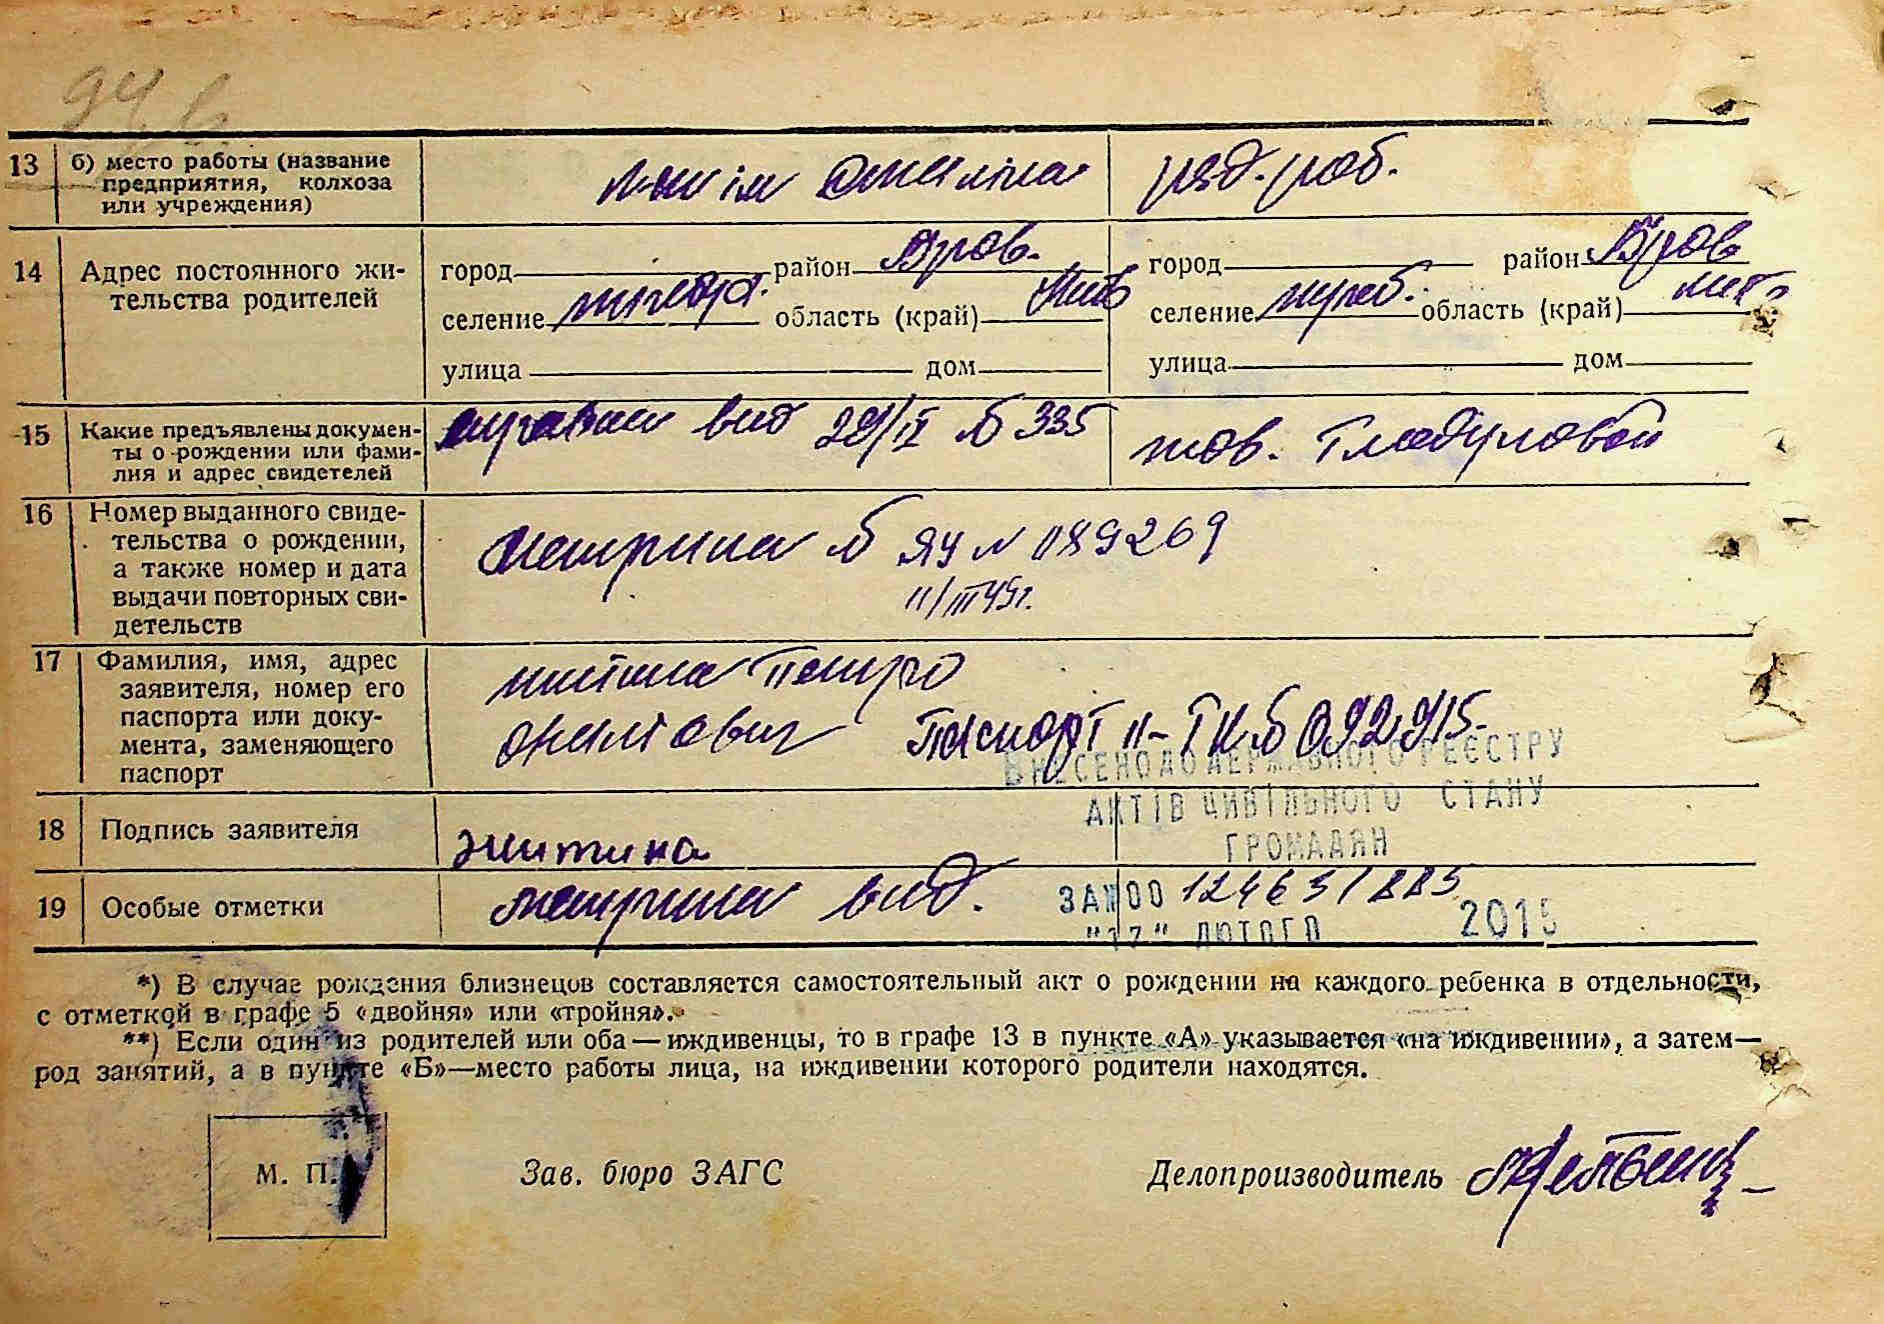 94
13 б) место работы (название
предприятия, колхоза
или учреждения)
рад. роб.
14 Адрес постоянного жи-
тельства родителей
город район Бров.
селение область (край) Київ
улица дом
город район Бров
селение область (край) Київ
улица дом
15 Какие предъявлены докумен-
ты о рождении или фами-
лия и адрес свидетелей
справки вид 29/II № 335
тов.
16 Номер выданного свиде-
тельства о рождении,
а также номер и дата
выдачи повторных сви-
детельств
метрика № ЯУ № 089269
11/III 45 г.
17 Фамилия, имя, адрес
заявителя, номер его
паспорта или доку-
мента, заменяющего
паспорт
Житина Петро
Паспорт II-ТК № 092915
ВНЕСЕНО ДО ДЕРЖАВНОГО РЕЄСТРУ
АКТІВ ЦИВІЛЬНОГО СТАНУ
ГРОМАДЯН
18 Подпись заявителя
Житина
19 Особые отметки
метрика вид.
ЗА №00 12463/883
"17" ЛЮТОГО 2015
*) В случае рождения близнецов составляется самостоятельный акт о рождении на каждого ребенка в отдельности,
с отметкой в графе 5 «двойня» или «тройня».
**) Если один из родителей или оба — иждивенцы, то в графе 13 в пункте «А» указывается «на иждивении», а затем—
род занятий, а в пункте «Б»—место работы лица, на иждивении которого родители находятся.
М. П.
Зав. бюро ЗАГС
Делопроизводитель